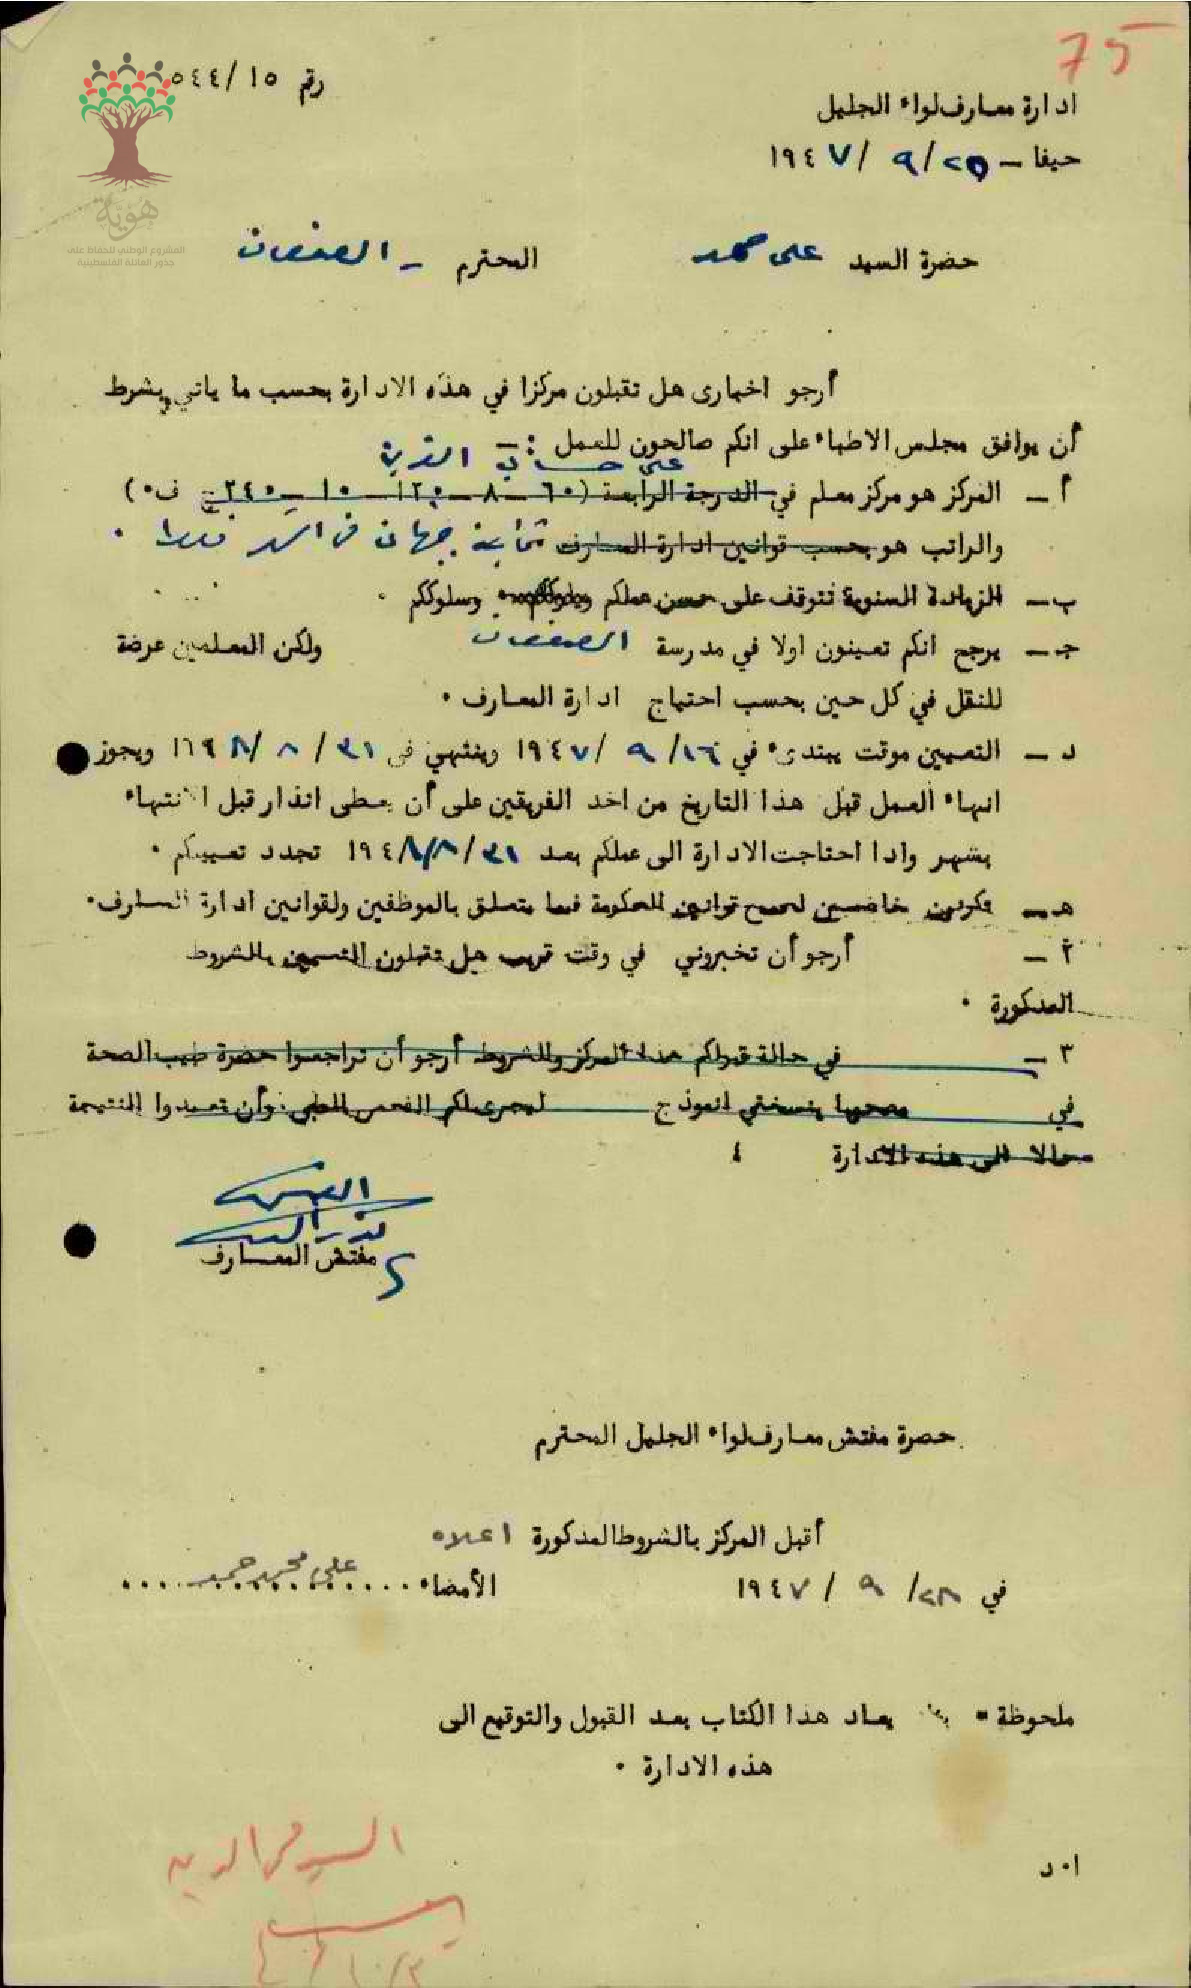 75
رقم ٥٤٤/١٥
ادارة معارف لواء الجليل
حيفا – ٢٥/ ٩ /١٩٤٧
هُوِيَّة
المشروع الوطني للحفاظ على
جذور العائلة الفلسطينية
حضرة السيد على محمد المحترم – الصفصاف
أرجو اخبارى هل تقبلون مركزا في هذه الادارة بحسب ما ياتي وبشرط
أن يوافق مجلس الاطباء على انكم صالحون للعمل :–
على حساب القرية
أ – المركز هو مركز معلم في الدرجة الرابعة (٦٠ – ٨ – ١٢٠ – ١٠ – ٢٤٠ ج ف٠)
والراتب هو بحسب قوانين ادارة المعارف ثمانية جنيهات في الشهر ٠
ب – الزيادة السنوية تتوقف على حسن عملكم وسلوككم ٠
ج – يرجح انكم تعينون اولا في مدرسة الصفصاف ولكن المعلمين عرضة
للنقل في كل حين بحسب احتياج ادارة المعارف ٠
د – التعيين موقت يبتدىء في ١٦/ ٩ /١٩٤٧ وينتهي في ٣١/ ٨ /١٩٤٨ ويجوز
انهاء العمل قبل هذا التاريخ من احد الفريقين على أن يعطى انذار قبل الانتهاء
بشهر واذا احتاجت الادارة الى عملكم بعد ٣١/٨/١٩٤٨ تجدد تعيينكم ٠
هـ – تكونون خاضعين لجميع قوانين الحكومة فيما يتعلق بالموظفين ولقوانين ادارة المعارف٠
٢ – أرجو أن تخبروني في وقت قريب هل تقبلون التعيين بالشروط
المذكورة ٠
٣ – في حالة قبولكم هذا المركز والشروط أرجو أن تراجعوا حضرة طبيب الصحة
في مصحوبا بنسختي انموذج ليجرى لكم الفحص الطبي وأن تعيدوا النتيجة
حالا الى هذه الادارة
مفتش المعارف
حضرة مفتش معارف لواء الجليل المحترم
أقبل المركز بالشروط المذكورة اعلاه
في ٢٨/ ٩ / ١٩٤٧ الأمضاء علي محمد حميد
ملحوظة = يعاد هذا الكتاب بعد القبول والتوقيع الى
هذه الادارة ٠
ا٠د